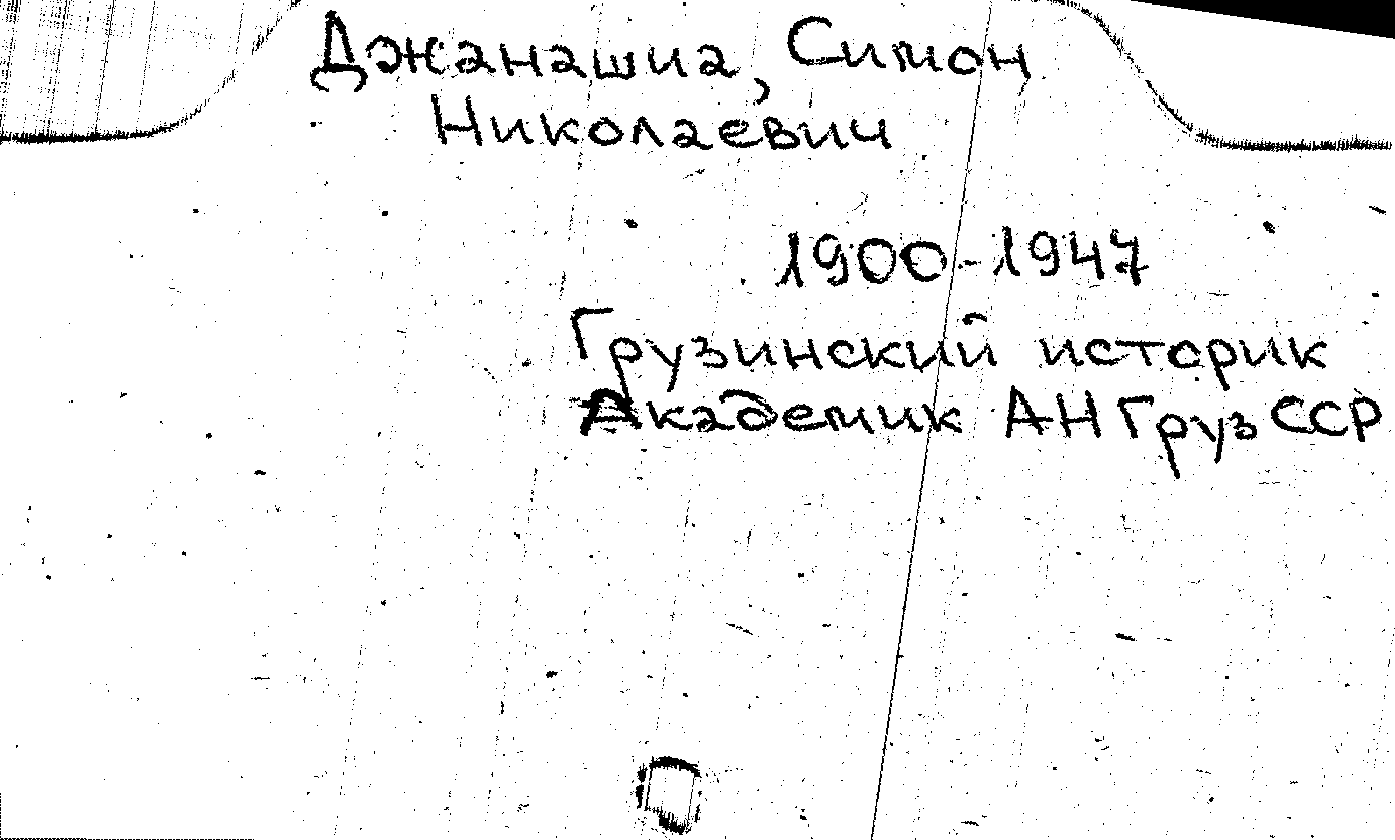 Джанашиа, Симон
Николаевич
1900-1947
Грузинский историк
Академик АН Груз ССР